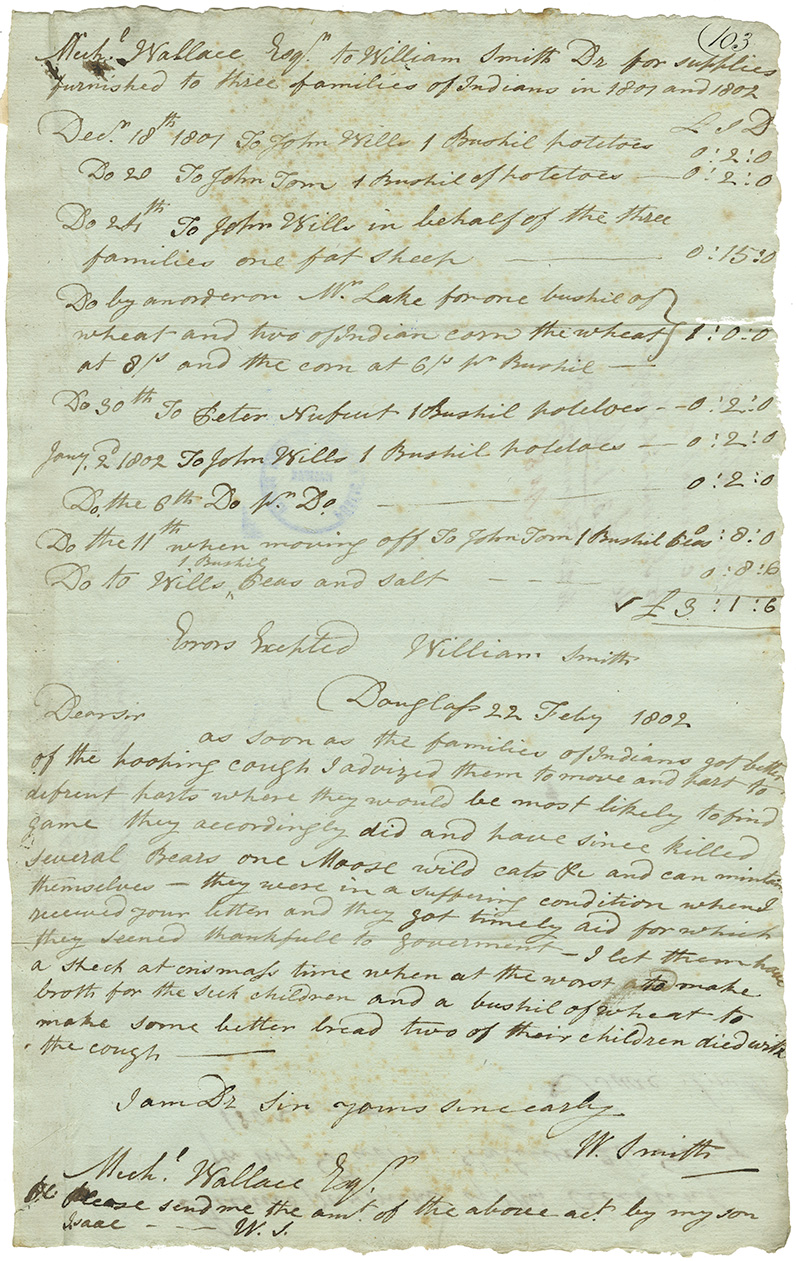 103
Mich.l Wallace Esq.r to William Smith Dr for supplies
furnished to three families of Indians in 1801 and 1802
£ S D
Dec.r 18th 1801 To John Wills 1 Bushil potetoes 0:2:0
Do 20 To John Tom 1 Bushil of potetoes — 0:2:0
Do 24th To John Wills in behalf of the three
families one fat sheep — 0:15:0
Do by an order on Mr. Lake for one bushil of
wheat and two of Indian corn the wheat } 1:0:0
at 8/s and the corn at 6/s pr Bushil —
Do 30th To Peter Nufcut 1 Bushil potetoes -- 0:2:0
Jany. 2d 1802 To John Wills 1 Bushil potetoes — 0:2:0
Do. the 6th Do pr. Do. — 0:2:0
Do the 11th when moving off To John Tom 1 Bushil Peas 0:8:0
Do to Wills 1 Bushil Peas and salt - - - 0:8:6
✓ £ 3:1:6
Errors Excepted William Smith
Douglass 22 Feby 1802
Dear sir
as soon as the families of Indians got better
of the hooping cough I advized them to move and part to
difrent parts where they would be most likely to find
game they accordingly did and have since killed
several Bears one Moose wild cats &c and can mintain
themselves — they were in a suffering condition when I
received your letter and they got timely aid for which
they seened thankfull to goverment — I let them have
a sheep at crismass time when at the worst to make
broth for the sick children and a bushil of wheat to
make some better bread two of their children died with
the cough —
I am Dr Sir yours sincearly
W. Smith
Mich.l Wallace Esq.r
Please send me the amt. of the above act. by my son
Isaac - - - W. S.